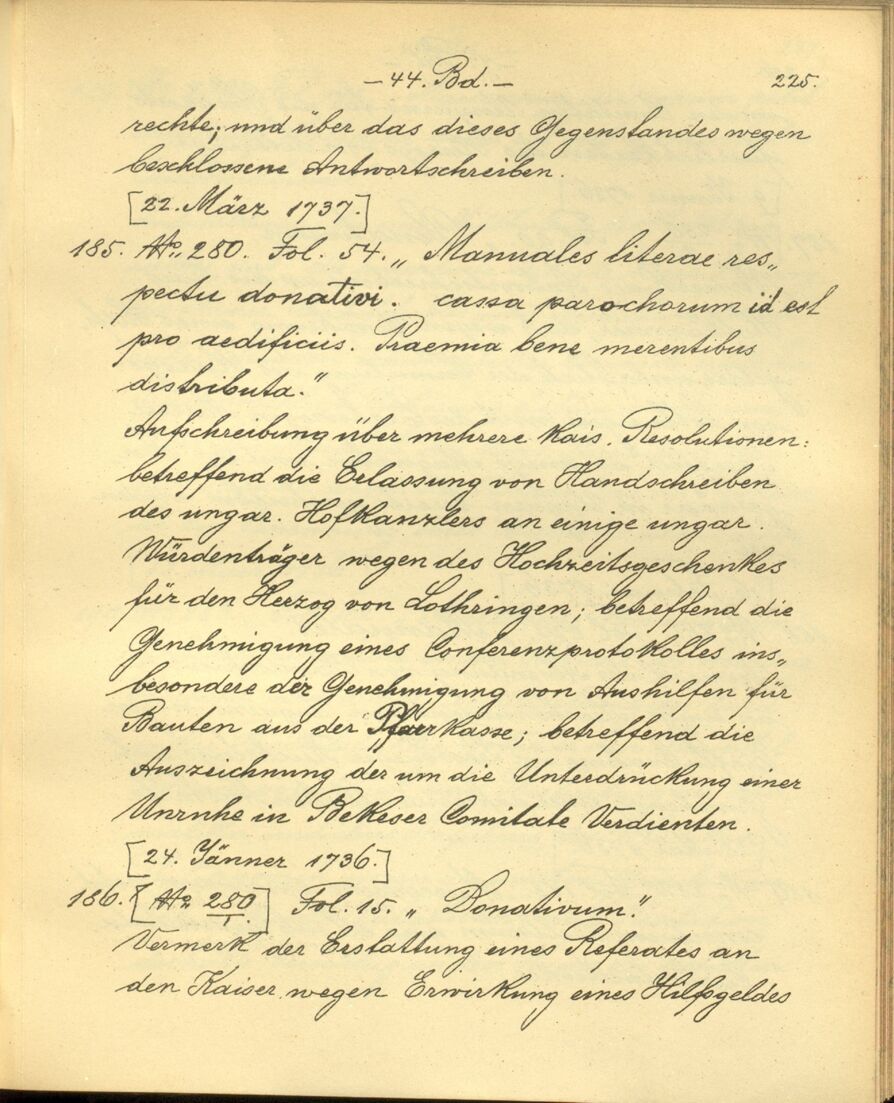 — 44. Bd. — 225.
rechte; und über das dieses Gegenstandes wegen
beschlossene Antwortschreiben.
[22. März 1737.]
185. No. 280. Fol. 54. „Manuales literae res„
pectu donativi. cassa parochorum id est
pro aedificiis. Praemia bene merentibus
distributa.“
Aufschreibung über mehrere kais. Resolutionen:
betreffend die Erlassung von Handschreiben
des ungar. Hofkanzlers an einige ungar.
Würdenträger wegen des Hochzeitsgeschenkes
für den Herzog von Lothringen; betreffend die
Genehmigung eines Conferenzprotokolles ins„
besondere der Genehmigung von Aushilfen für
Bauten aus der Pfarrkasse; betreffend die
Auszeichnung der um die Unterdrückung einer
Unruhe in Bekeser Comitate Verdienten.
[24. Jänner 1736.]
186. [No 280/I.] Fol. 15. „Donativum.“
Vermerk der Erstattung eines Referates an
den Kaiser wegen Erwirkung eines Hilfsgeldes